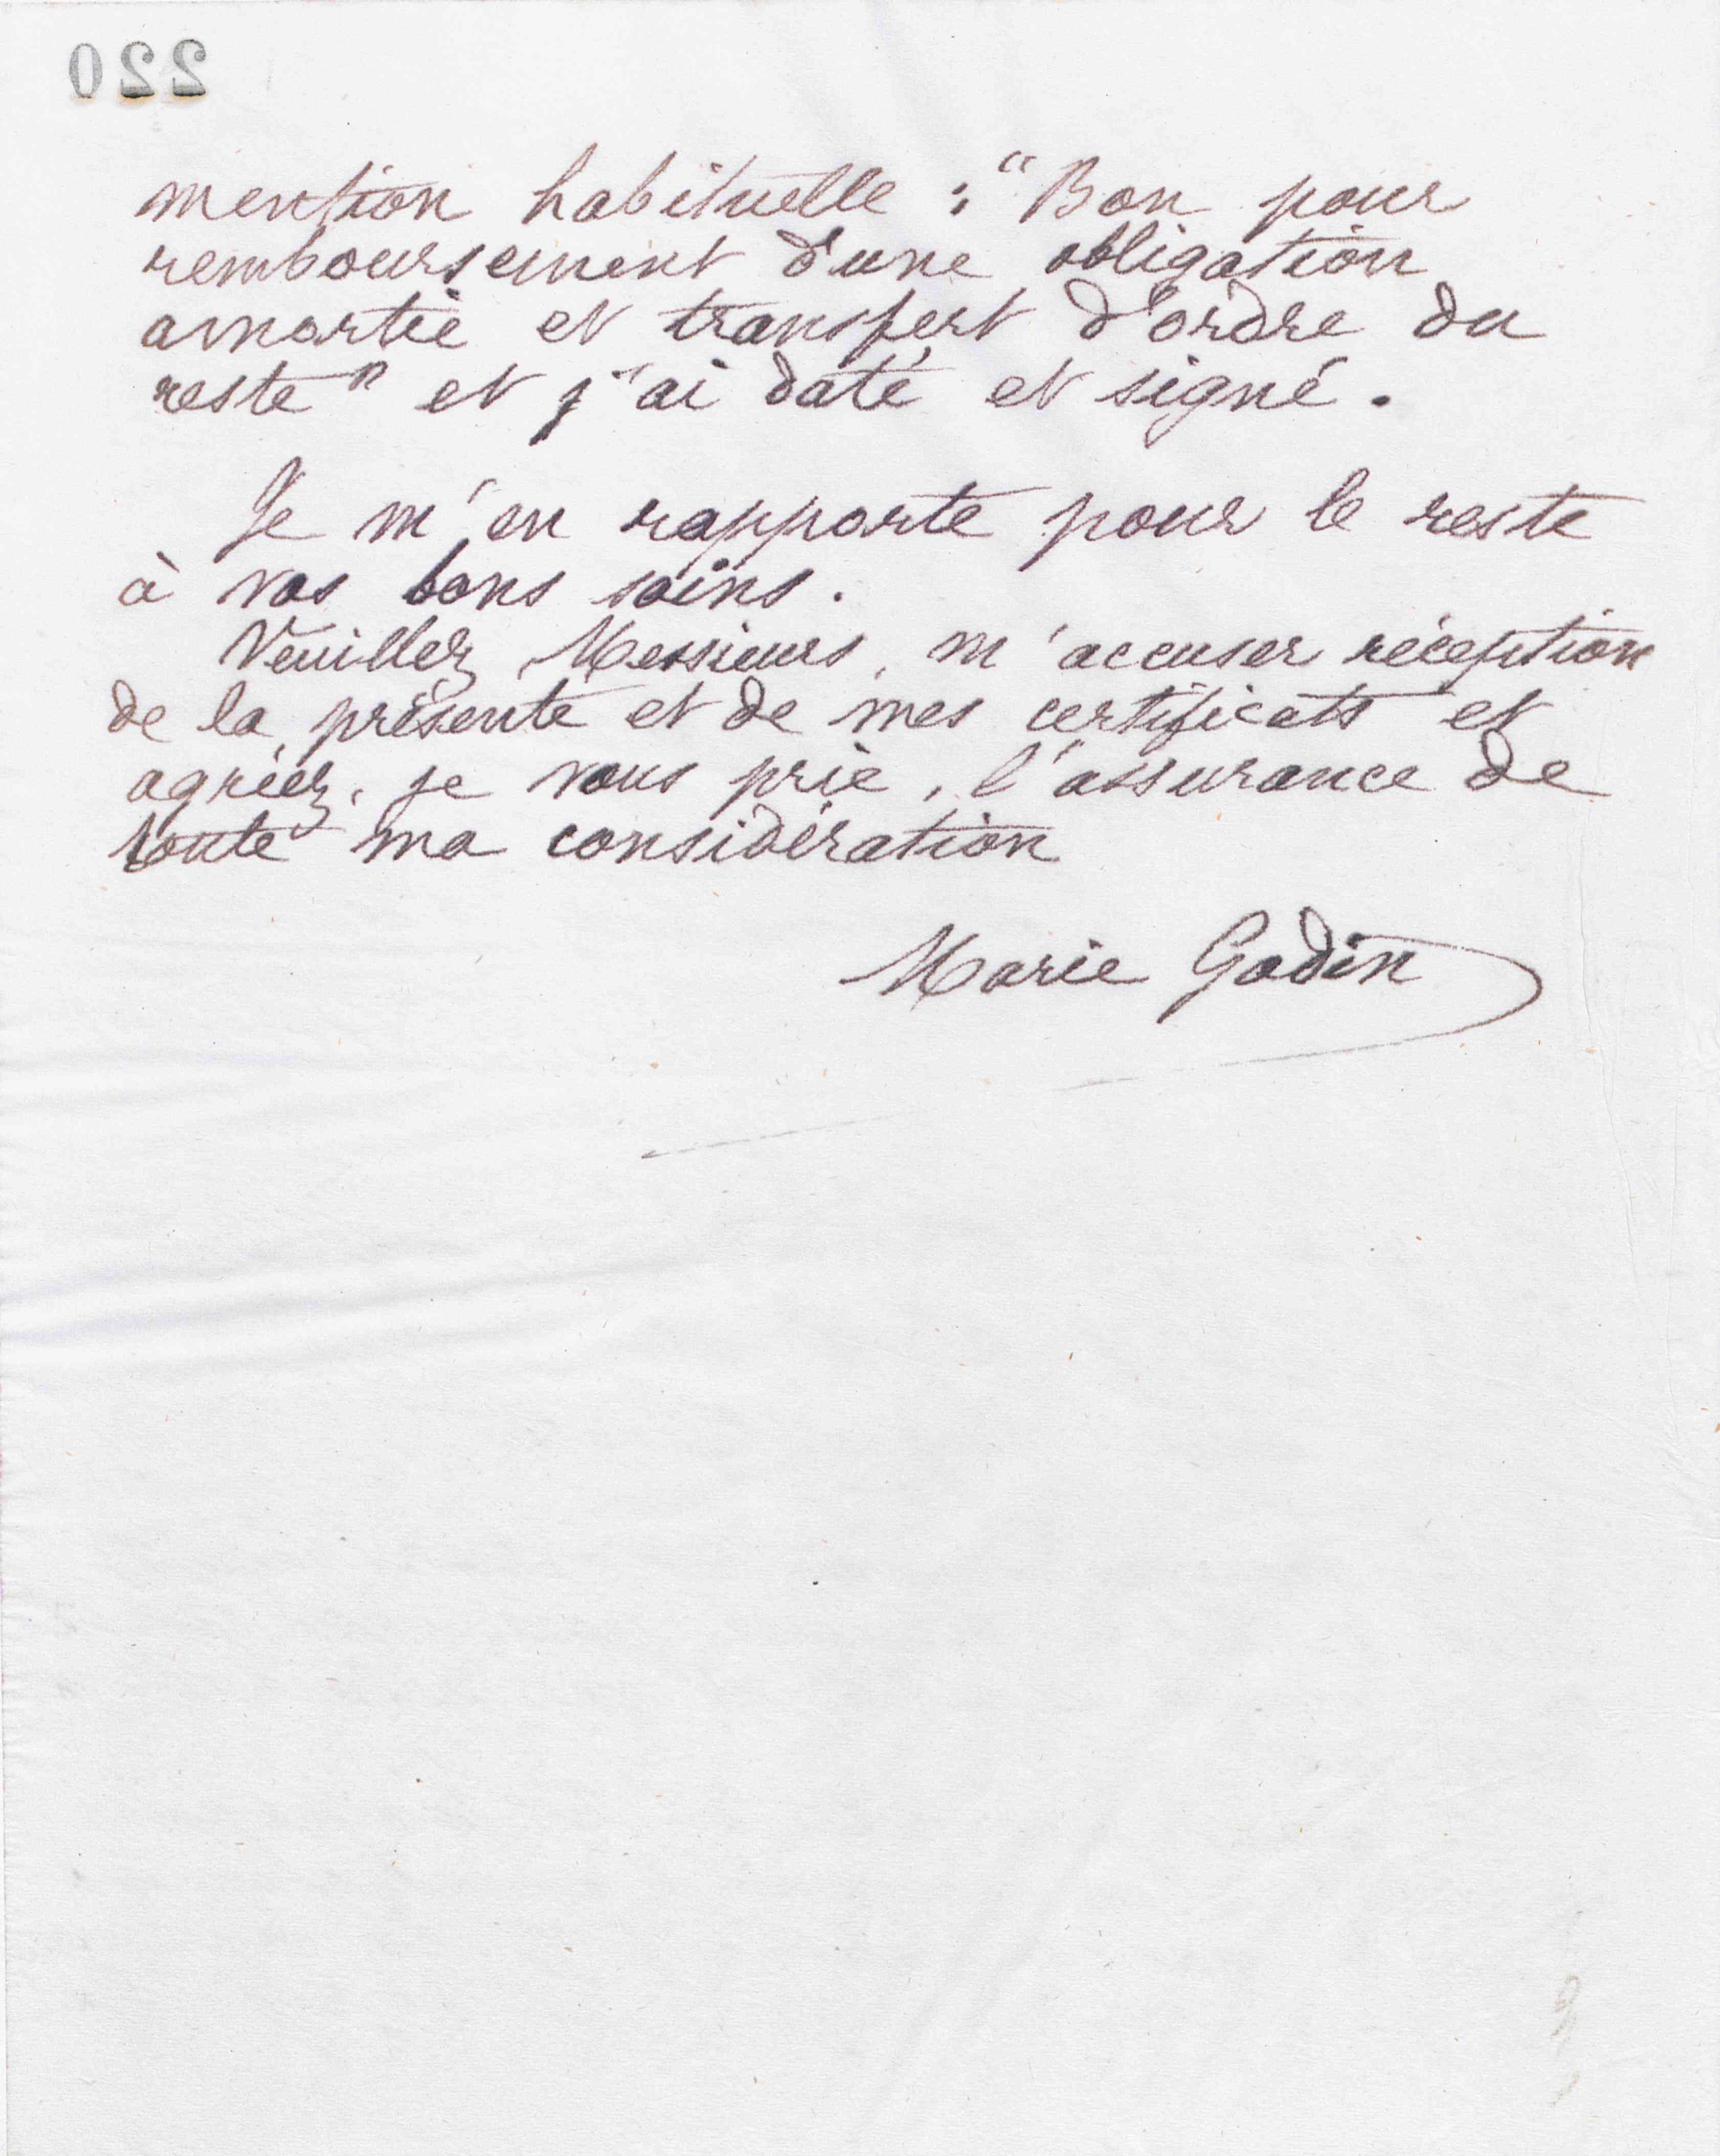 220
mention habituelle : "Bon pour
remboursement d'une obligation
amortie et transfert d'ordre du
reste" et j'ai daté et signé.
Je m'en rapporte pour le reste
à vos bons soins.
Veuillez, Messieurs, m'accuser réception
de la présente et de mes certificats et
agréez, je vous prie, l'assurance de
toute ma considération
Marie Godin